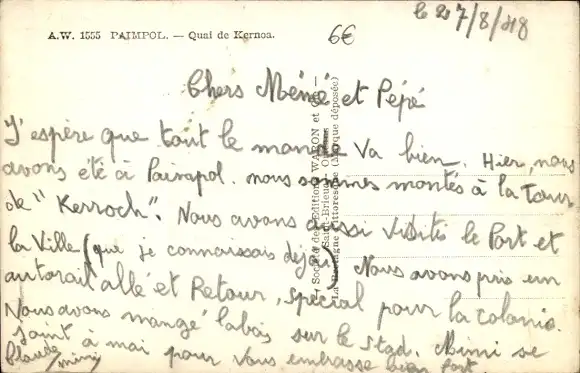 A.W. 1555 PAIMPOL. — Quai de Kernoa.
6€
le 27/8/48
Chers Mémé et Pépé
J'espère que tout le monde va bien. Hier, nous
avons été à Paimpol. nous sommes montés à la Tour
de "Kerroch". Nous avons aussi visité le Port et
la Ville (que je connaissais déjà) Nous avons pris un
autorail allé et Retour, spécial pour la colonie.
Nous avons mangé labas sur le stad. Mimi se
joint à moi pour vous embrasse bien fort.
Claude mimi
Société des Editions WARON et
Saint-Brieuc
La Bretagne Pittoresque (Marque déposée)